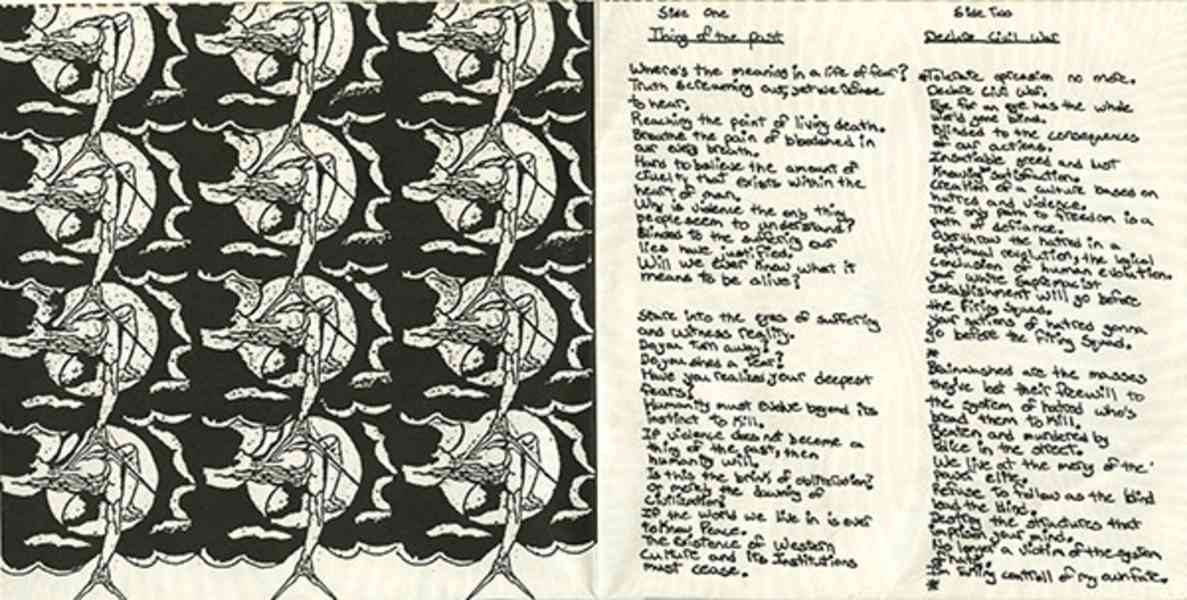 Side One
Thing of the past
Where's the meaning in a life of fear?
Truth screaming out, yet we refuse
to hear.
Reaching the point of living death.
Breathe the pain of bloodshed in
our every breath.
Hard to believe the amount of
cruelty that exists within the
heart of man.
Why is violence the only thing
people seem to understand?
Blinded to the suffering our
lies have justified.
Will we ever know what it
means to be alive?
Stare into the eyes of suffering
and witness reality.
Do you turn away?
Do you shed a tear?
Have you realized your deepest
fears?
Humanity must evolve beyond its
instinct to Kill.
If violence does not become a
thing of the past, then
humanity will.
Is this the brink of obliteration?
Or merely the dawning of
Civilization?
If the world we live in is ever
to Know Peace.
The existence of Western
Culture and Its Institutions
must cease.
Side Two
Declare Civil War
Tolerate opression no more.
Declare Civil War.
Eye for an eye has the whole
world gone blind.
Blinded to the consequences
of our actions.
Insatiable greed and lust
Knowing satisfaction.
Creation of a culture based on
hatred and violence.
The only path to freedom is a
path of defiance.
Overthrow the hatred in a
spiritual revolution, the logical
conclusion of human evolution.
Your white supremacist
establishment will go before
the firing squad.
Your nations of hatred gonna
go before the firing squad.
*
Brainwashed are the masses
they've lost their freewill to
the system of hatred who's
bread them to Kill.
Beaten and murdered by
police in the street.
We live at the mercy of the
power elite.
Refuse to follow as the blind
lead the blind.
Destroy the structures that
imprison your mind.
No longer a victim of the system
of hate.
I'm taking controll of my own fate.
*